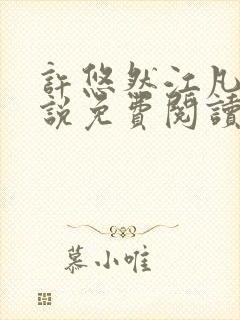 許悠然江凡
說免費閱讀
慕小唯